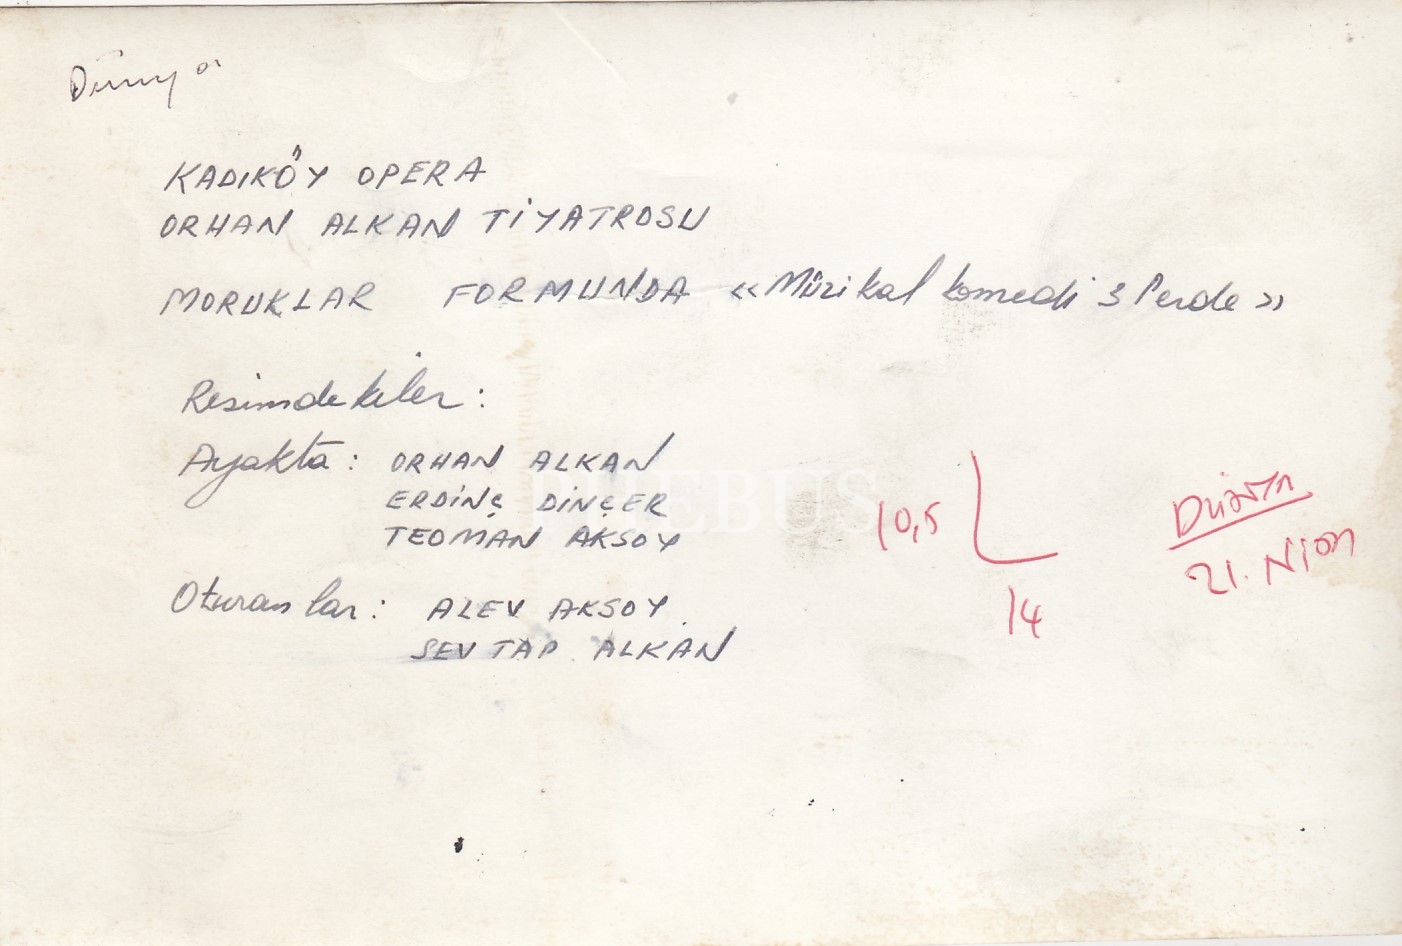 Dünya
KADIKÖY OPERA
ORHAN ALKAN TİYATROSU
MORUKLAR FORMUNDA «Müzikal komedi 3 Perde»
Resimdekiler:
Ayakta: ORHAN ALKAN
ERDİNÇ DİNÇER
TEOMAN AKSOY
Oturanlar: ALEV AKSOY
SEVTAP ALKAN
10,5
14
21. Nisan
PHEBUS